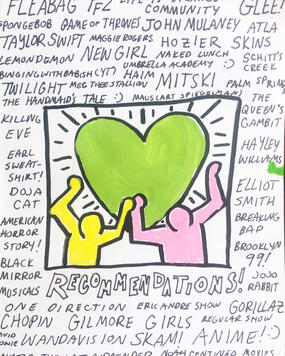 FLEABAG TFZ
COMMUNITY GLEE!
SPONGEBOB GAME OF THRONES JOHN MULANEY ATLA
TAYLOR SWIFT MAGGIE ROGERS HOZIER SKINS
LEMON DEMON NEW GIRL NAKED LUNCH SCHITT'S
UMBRELLA ACADEMY :) CREEK
BINGINGWITHBABISH (YT) HAIM MITSKI PALM SPRINGS
TWILIGHT MEG THEE STALLION
THE HANDMAID'S TALE :) MAUS (ART SPIEGELMAN)
THE
QUEEN'S
GAMBIT
KILLING
EVE
HAYLEY
WILLIAMS
EARL
SWEAT-
SHIRT!
ELLIOT
SMITH
DOJA
CAT
BREAKING
BAD
AMERICAN
HORROR
STORY!
BROOKLYN
99!
BLACK
MIRROR
JOJO
RABBIT
MUSICALS
RECOMMENDATIONS!
ONE DIRECTION ERIC ANDRE SHOW GORILLAZ
CHOPIN GILMORE GIRLS REGULAR SHOW
WANDAVISION SKAM! ANIME! :)